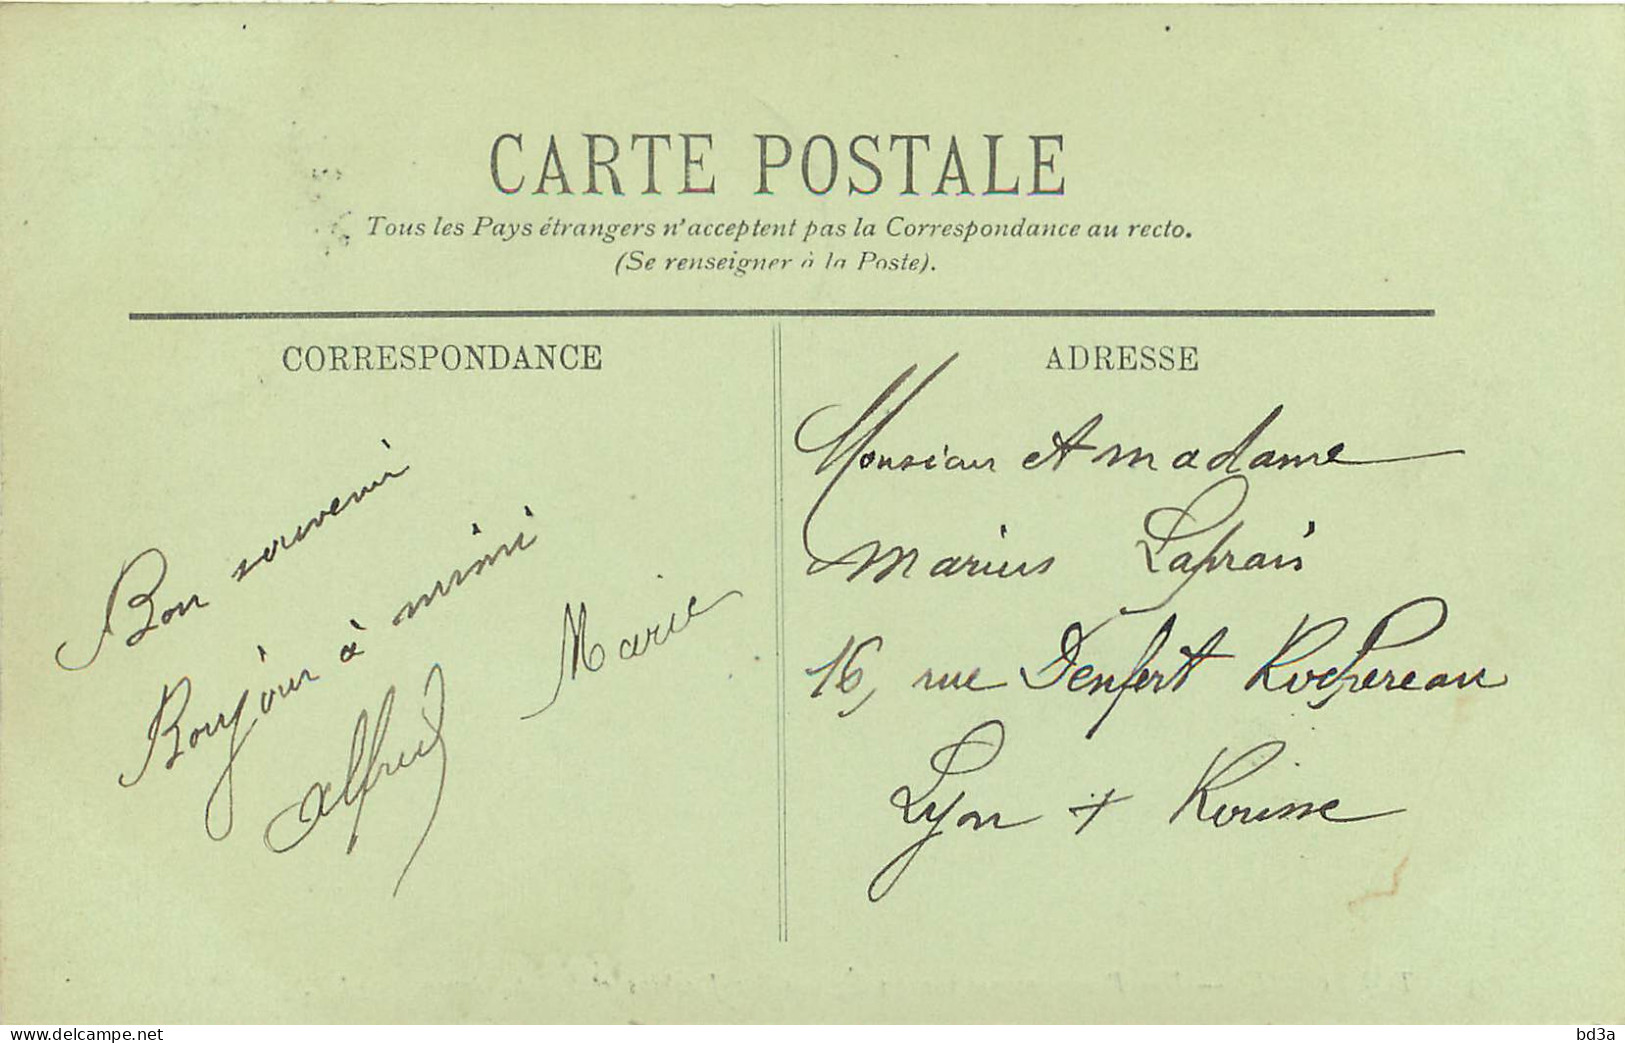 CARTE POSTALE
Tous les Pays étrangers n'acceptent pas la Correspondance au recto.
(Se renseigner à la Poste).
CORRESPONDANCE
Bon souvenir
Bonjour à mimi
Alfred Marie
ADRESSE
Monsieur et madame
Marius Laprais
16, rue Denfert Rochereau
Lyon + Rousse
www.delcampe.net
bd3a